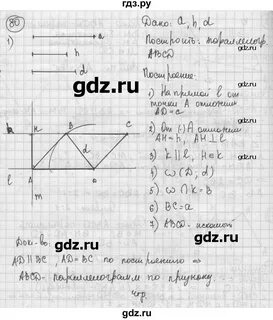 80
1)
a
h
d
Дано: a, h, d
Построить: параллелогр.
ABCD
Построение:
1) На прямой l от
точки A отложим
AD = a
2) От (·) A отложим
AH = h, AH ⊥ l
3) k ∥ l, H ∈ k
4) ω (D, d)
5) ω ∩ k = B
6) BC = a
7) ABCD - искомый
k H B C
d
l A D
m
Док-во.
AD ∥ BC AD = BC по построению ⇒
ABCD - параллелограмм по признаку.
чтд.
gdz.ru
gdz.ru
gdz.ru
gdz.ru
gdz.ru
gdz.ru